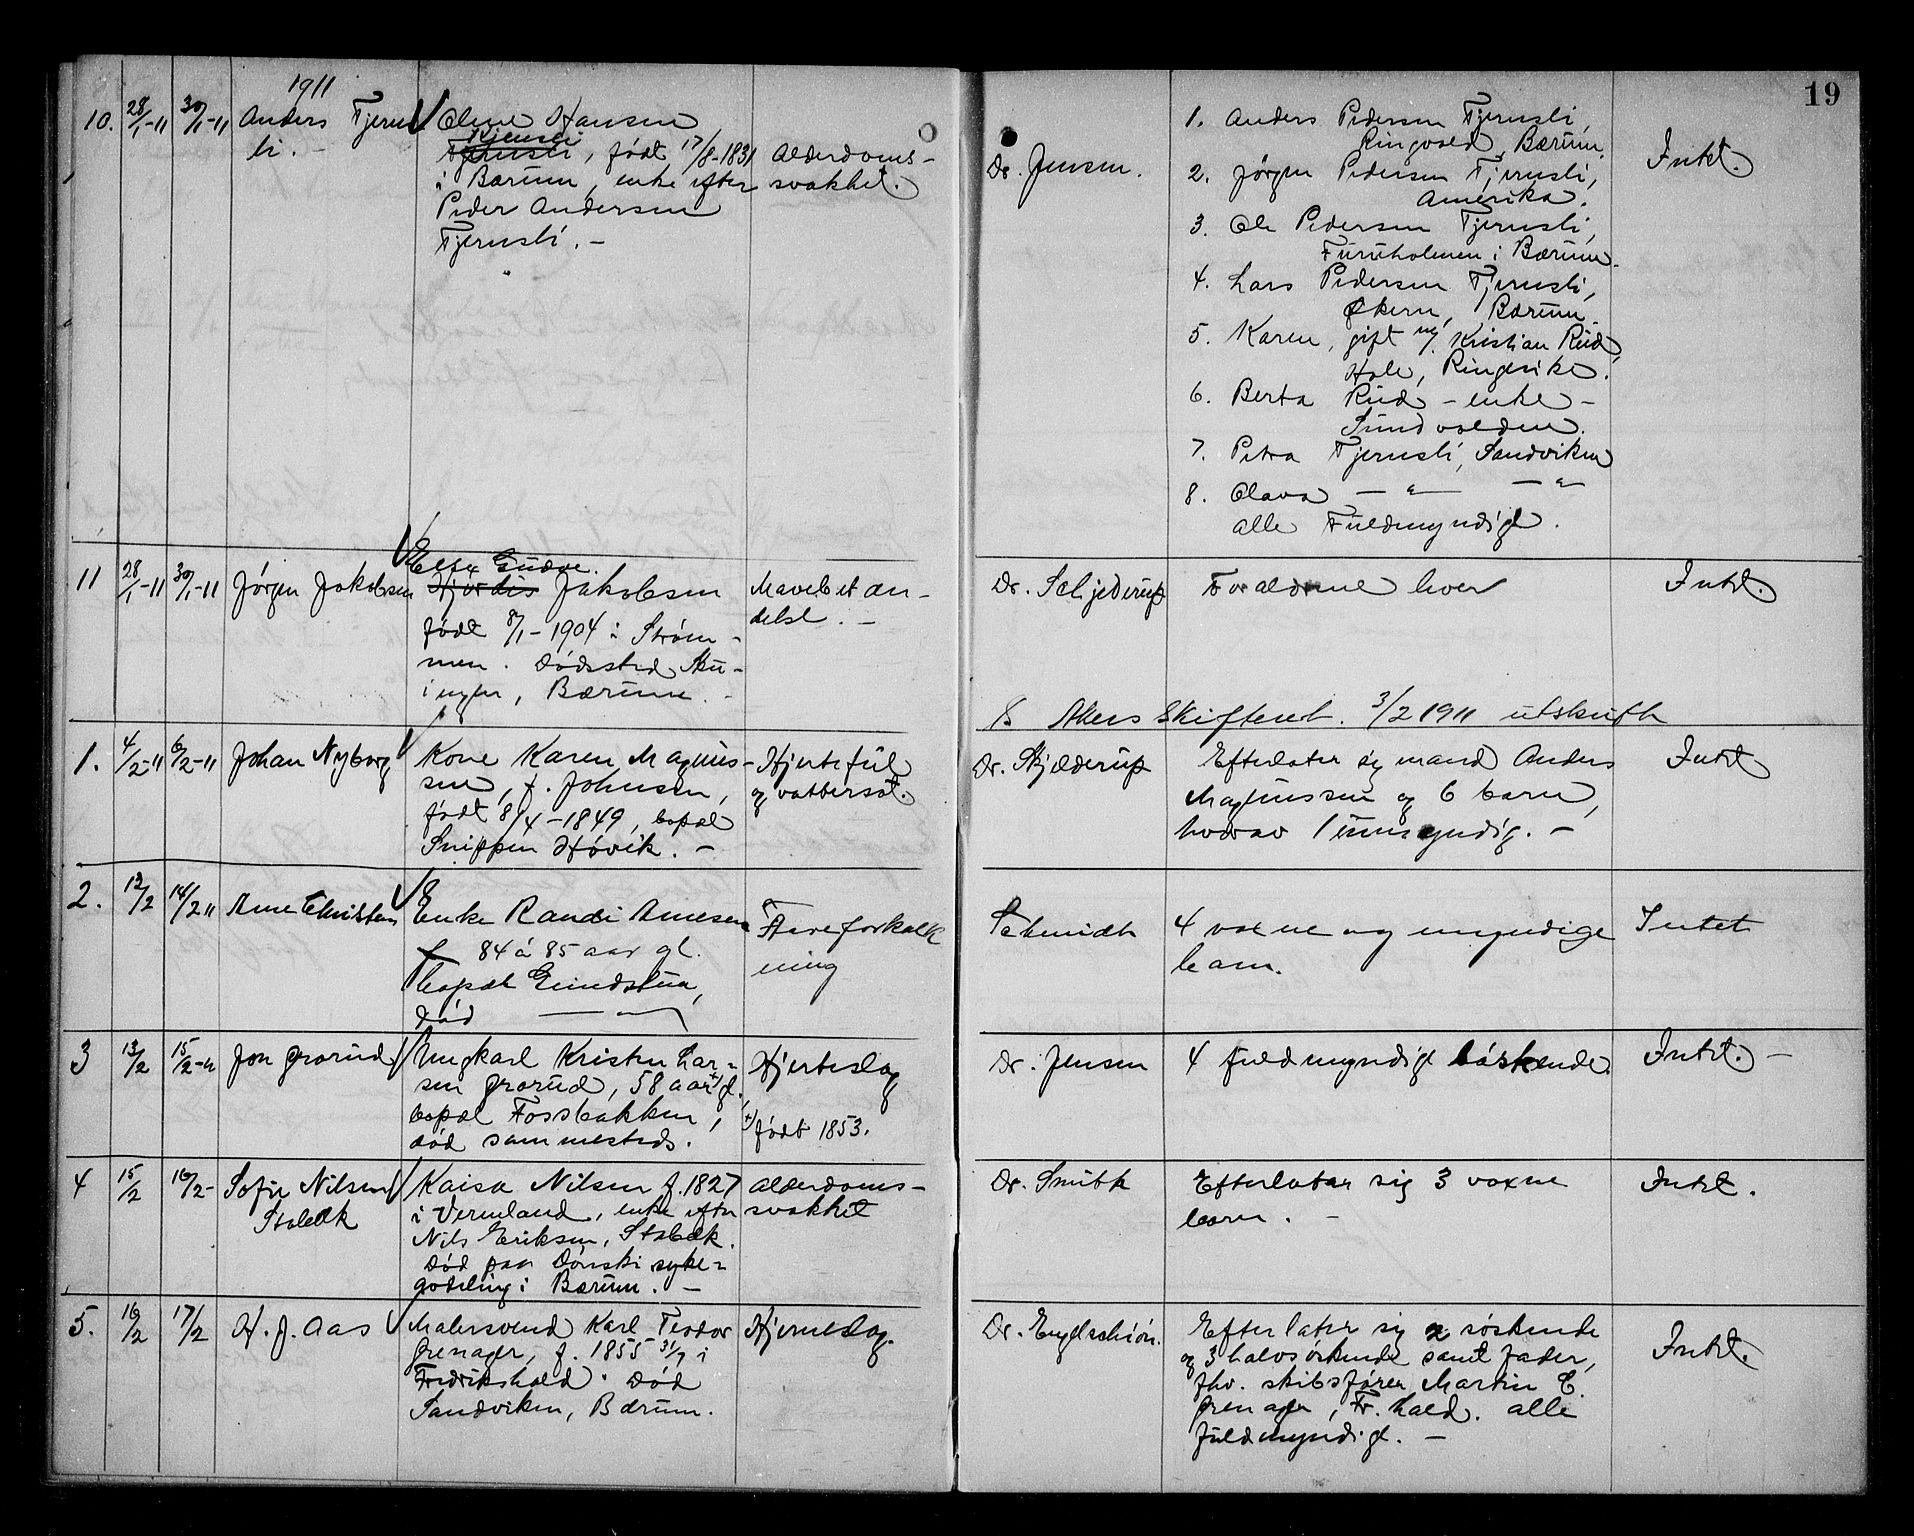 19
1911
10. 28/1-11 30/1-11 Anders Fjernsli. -
Oline Hansen
Kjensli
Fjernsli, født 17/8-1831
i Bærum, enke efter
Peder Andersen
Fjernsli. -
Alderdoms-
svakhet.
Dr. Jensen.
1. Anders Pedersen Fjernsli,
Ringvold, Bærum.
2. Jørgen Pedersen Fjernsli,
Amerika.
3. Ole Pedersen Fjernsli,
Furuholmen i Bærum.
4. Lars Pedersen Fjernsli,
Økern, Bærum.
5. Karen, gift m/ Kristian Rud,
Hole, Ringerike.
6. Berta Rud - enke -
Sundvolden.
7. Petra Fjernsli, Sandviken
8. Olava — " — — " —
alle Fuldmyndige.
Intet.
11 28/1-11 30/1-11 Jørgen Jakobsen
Else Gudve.
Hjørdis Jakobsen
født 8/1-1904 i Strøm-
men. Dødssted Sku-
ingen, Bærum. -
Mavebetæn-
delse. -
Dr. Schjelderup
Forældrene lever
Intet.
Akers Skifteret. 3/2 1911 utskrift
1. 4/2-11 6/2-11 Johan Nyborg
Kone Karen Magnus-
sen, f. Johnsen,
født 8/4-1849, bopæl
Snippen Høvik. -
Hjertefeil
og vattersot.
Dr. Skjelderup
Efterlater sig mand Anders
Magnussen og 6 barn,
hvorav 1 umyndig. -
Intet
2. 12/2 14/2 11 Arne Christensen
Enke Randi Arnesen
84 á 85 aar gl.
bopæl Grindstua,
død — " —
Aareforkalk
ning
Schmidt
4 voxne og myndige
barn.
Intet
3 13/2 15/2-11 Jon Grorud
Ungkarl Kristen Lar-
sen Grorud, 58 aar +) gl.
bopæl Fossbakken,
død sammesteds.
Hjerteslag
+) født 1853.
Dr. Jensen
4 fuldmyndige søskende.
Intet. -
4 15/2 16/2- Sofie Nilsen
Stabæk
Kaisa Nilsen f. 1827
i Vermland, enke efter
Nils Eriksen, Stabæk.
Død paa Dønski syke-
avdeling i Bærum. -
Alderdoms-
svakhet
Dr. Smith
Efterlater sig 3 voxne
barn. -
Intet.
5. 16/2 17/2 H. J. Aas
Malersvend Karl Teodor
Grenager, f. 1855 31/7 i
Fredrikshald. Død
Sandviken, Bærum.
Hjerneslag.
Dr. Engelschiøn.
Efterlater sig 2 søskende
og 3 halvsøskende samt fader,
fhv. skibsfører Martin E.
Grenager, Fr.hald. alle
fuldmyndige. -
Intet.